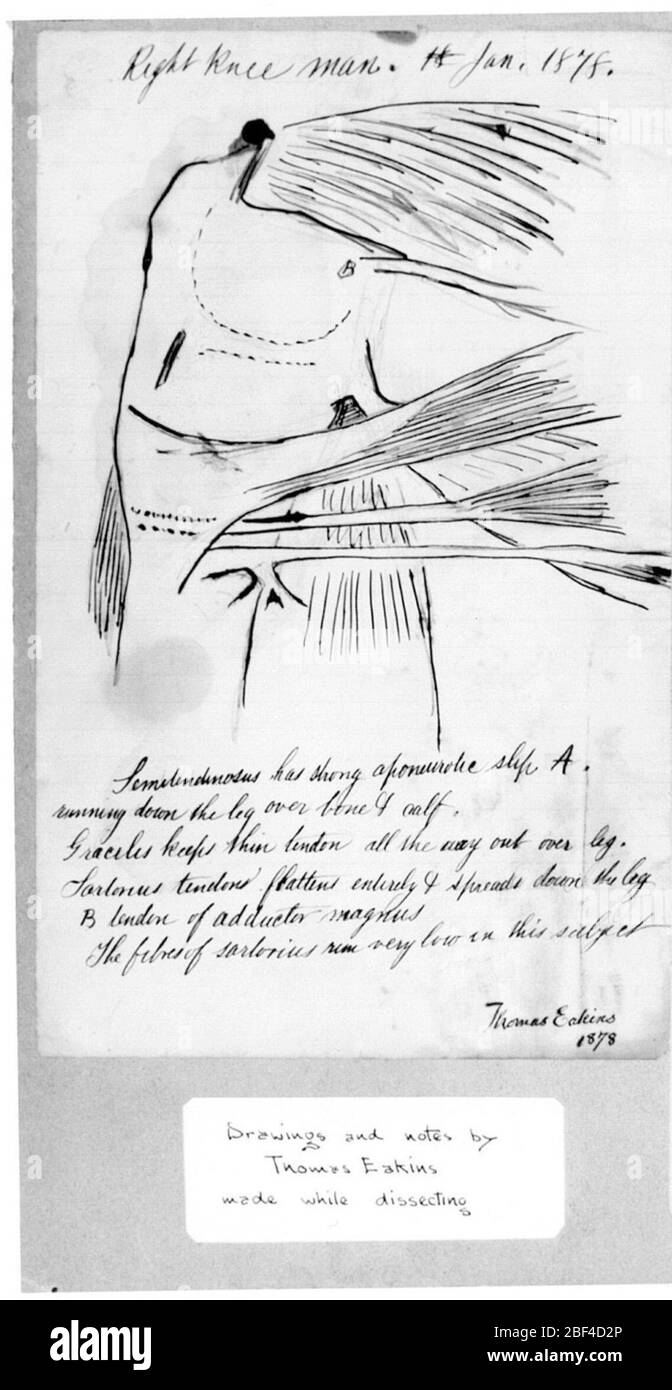 Right Knee man. Jan. 1878.
B
A
Semitendinosus has strong aponeurotic slip A.
running down the leg over bone & calf.
Gracilis keeps thin tendon all the way out over leg.
Sartorius tendons flattens entirely & spreads down the leg
B tendon of adductor magnus
The fibres of sartorius run very low in this subject
Thomas Eakins
1878
Drawings and notes by
Thomas Eakins
made while dissecting
alamy
Image ID: 2BF4D2P
www.alamy.com